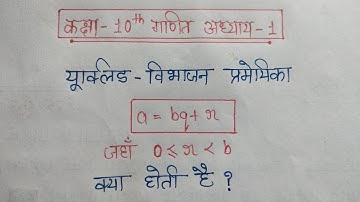 कक्षा - 10th गणित अध्याय - 1
यूक्लिड - विभाजन प्रमेयिका
a = bq + r
जहाँ 0 ≤ r < b
क्या होती है ?